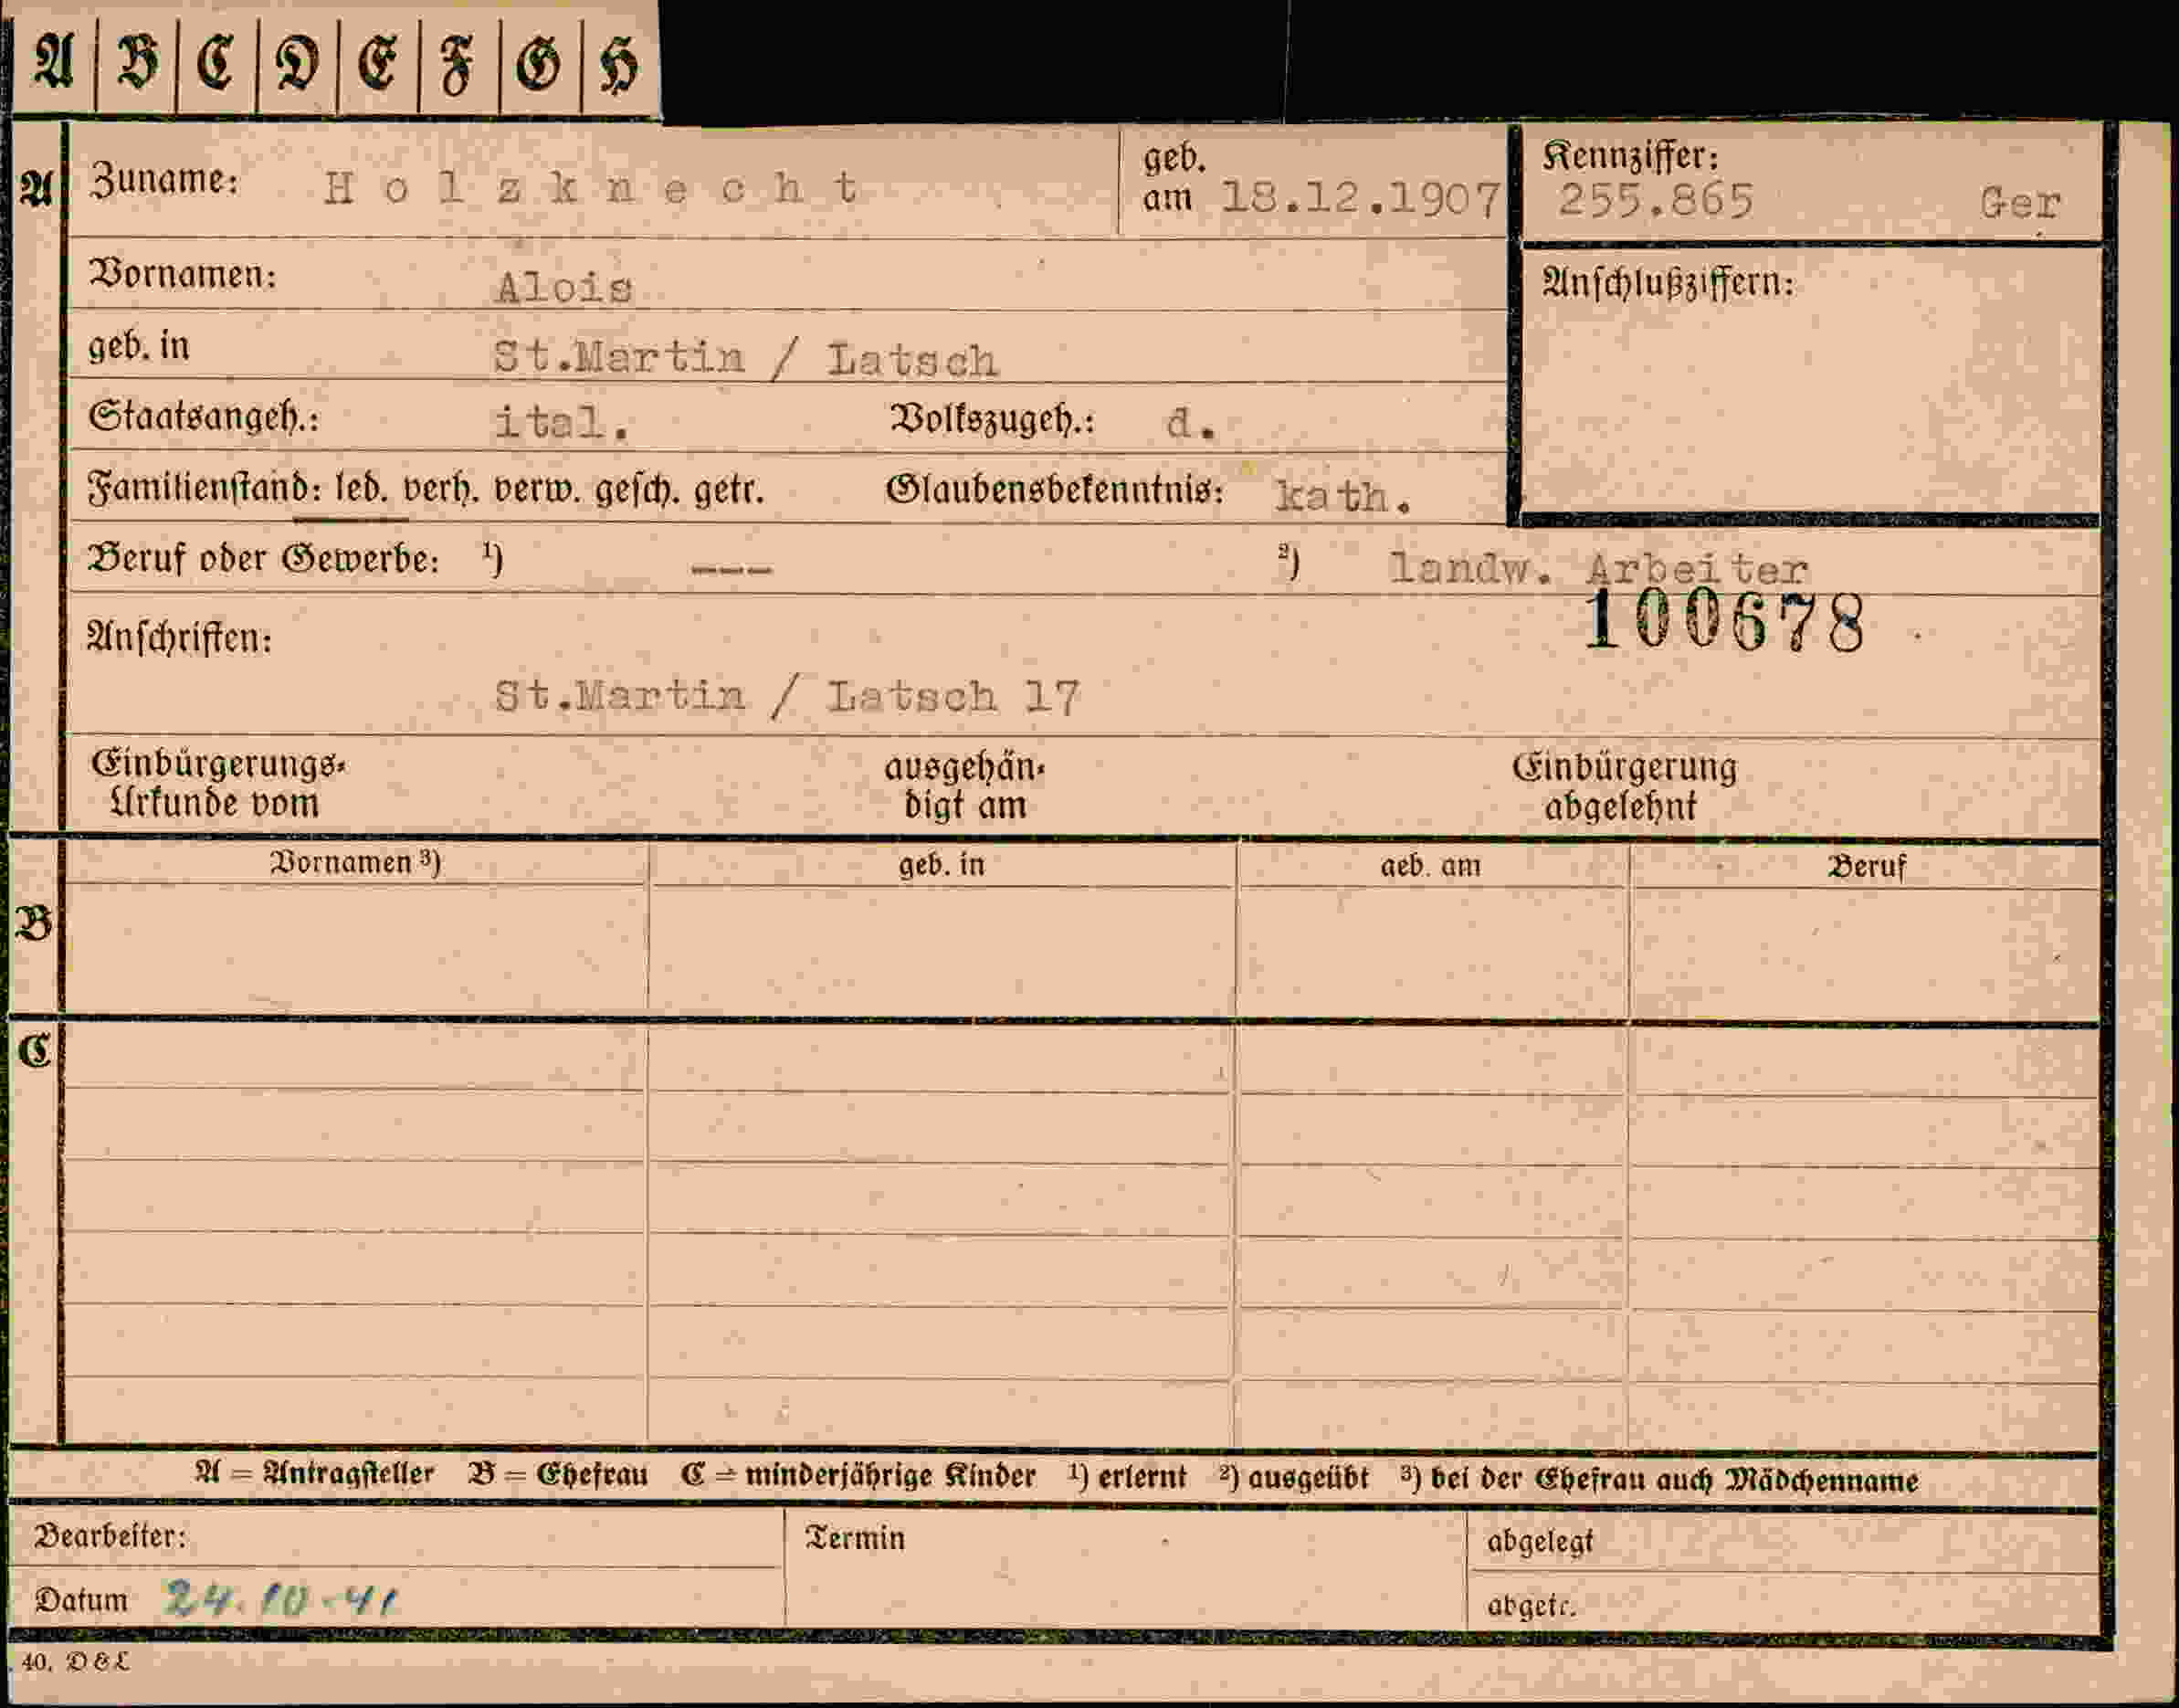 A B C D E F G H
A Zuname: Holzknecht geb. am 18.12.1907 Kennziffer: 255.865 Ger
Vornamen: Alois Anschlußziffern:
geb. in St.Martin / Latsch
Staatsangeh.: ital. Volkszugeh.: d.
Familienstand: led. verh. verw. gesch. getr. Glaubensbekenntnis: kath.
Beruf oder Gewerbe: ¹) --- ²) landw. Arbeiter
100678
Anschriften:
St.Martin / Latsch 17
Einbürgerungs- ausgehän- Einbürgerung
Urkunde vom digt am abgelehnt
Vornamen ³) geb. in geb. am Beruf
B
C
A = Antragsteller B = Ehefrau C = minderjährige Kinder ¹) erlernt ²) ausgeübt ³) bei der Ehefrau auch Mädchenname
Bearbeiter: Termin abgelegt
Datum 24.10-41 abgetr.
40. D & L